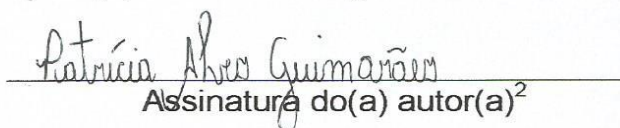 Patrícia Alves Guimarães
Assinatura do(a) autor(a)²